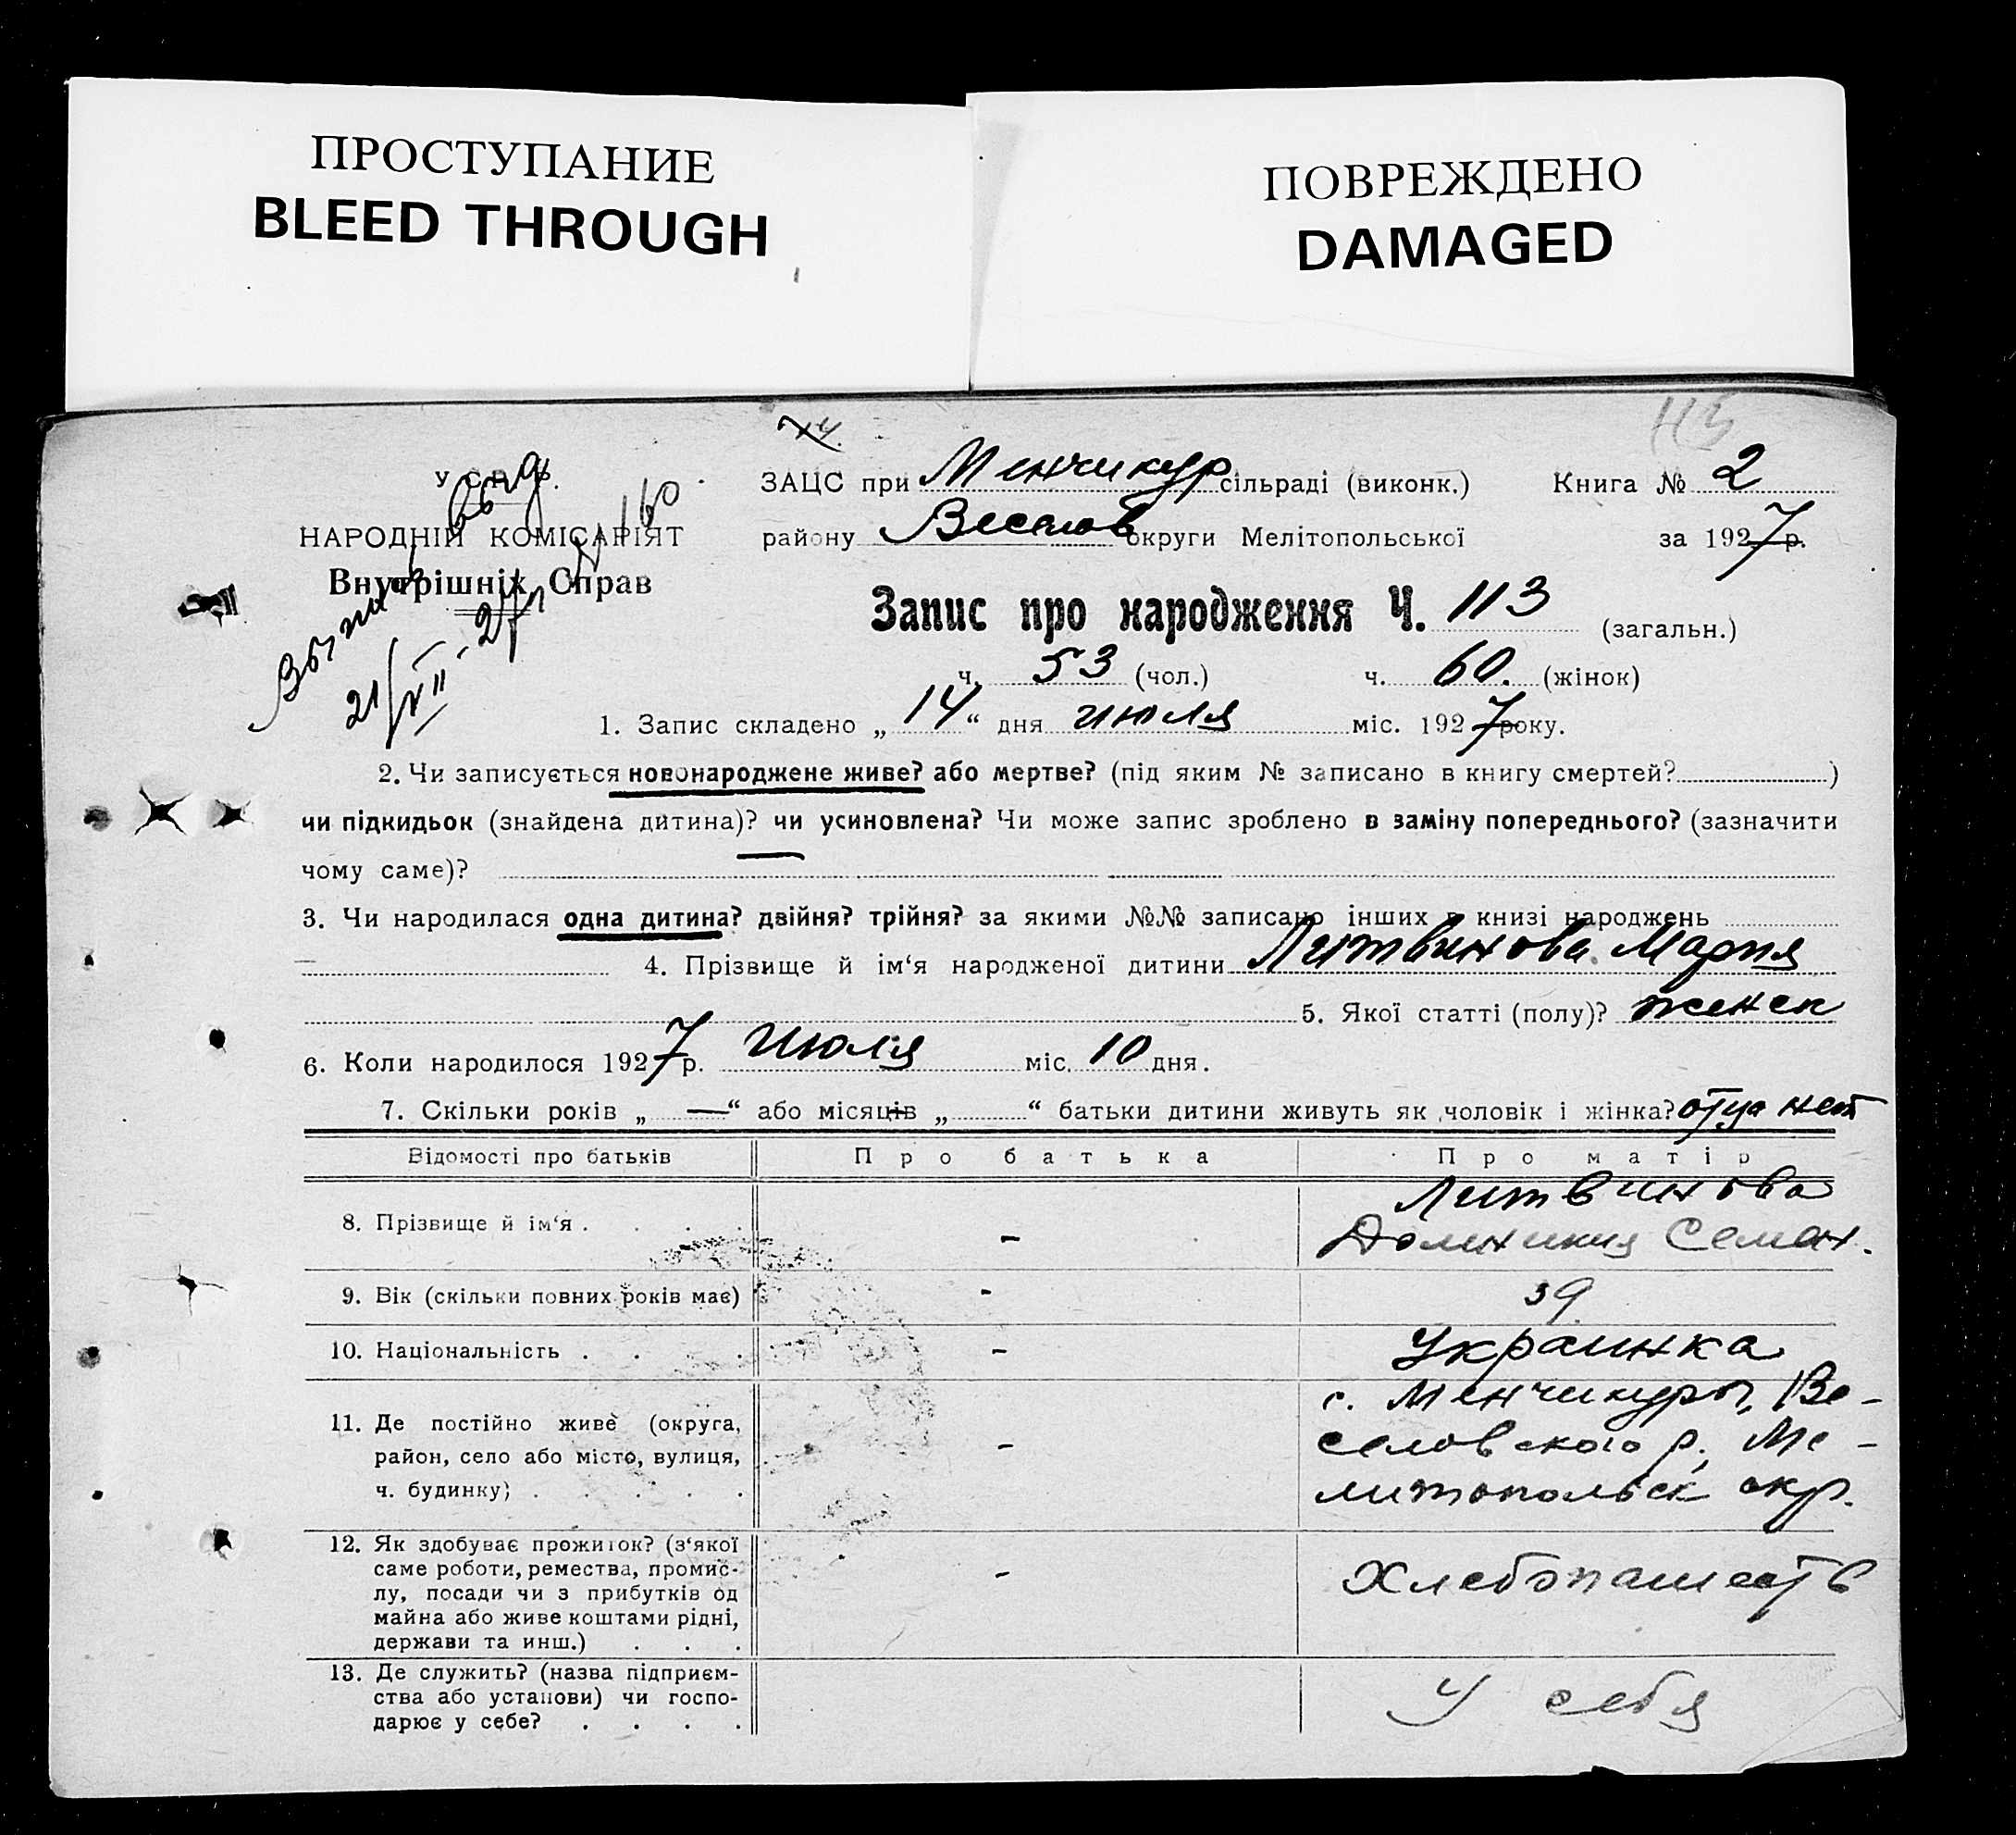 ПРОСТУПАНИЕ
BLEED THROUGH
ПОВРЕЖДЕНО
DAMAGED
113
У.С.Р.Р.
НАРОДНІЙ КОМІСАРІЯТ
Внутрішніх Справ
21/VII-27 № 160
ЗАЦС при Менчикур сільраді (виконк.) Книга № 2
району Веселов округи Мелітопольської за 1927 р.
Запис про народження Ч. 113 (загальн.)
ч. 53 (чол.) ч. 60. (жінок)
1. Запис складено „14“ дня июля міс. 1927 року.
2. Чи записується новонароджене живе? або мертве? (під яким № записано в книгу смертей? )
чи підкидьок (знайдена дитина)? чи усиновлена? Чи може запис зроблено в заміну попереднього? (зазначити
чому саме)?
3. Чи народилася одна дитина? двійня? трійня? за якими №№ записано інших в книзі народжень
— 4. Прізвище й ім‘я народженої дитини Литвинова Мария
5. Якої статті (полу)? женск
6. Коли народилося 1927 р. июля міс. 10 дня.
7. Скільки років „ — “ або місяців „ “ батьки дитини живуть як чоловік і жінка? отца нет
Відомості про батьків Про батька Про матір
8. Прізвище й ім‘я . . . . - Литвинова
Доминикия Семен.
9. Вік (скільки повних років має) - 39
10. Національність . . . . - Украинка
11. Де постійно живе (округа, - с. Менчикуры, Ве-
район, село або місто, вулиця, селовского р., Ме-
ч. будинку) . . . . . литопольск окр.
12. Як здобуває прожиток? (з‘якої
саме роботи, ремества, промис- - Хлебопашеств
лу, посади чи з прибутків од
майна або живе коштами рідні,
держави та инш.) . . .
13. Де служить? (назва підприєм-
ства або установи) чи госпо- У себя
дарює у себе? . . . .